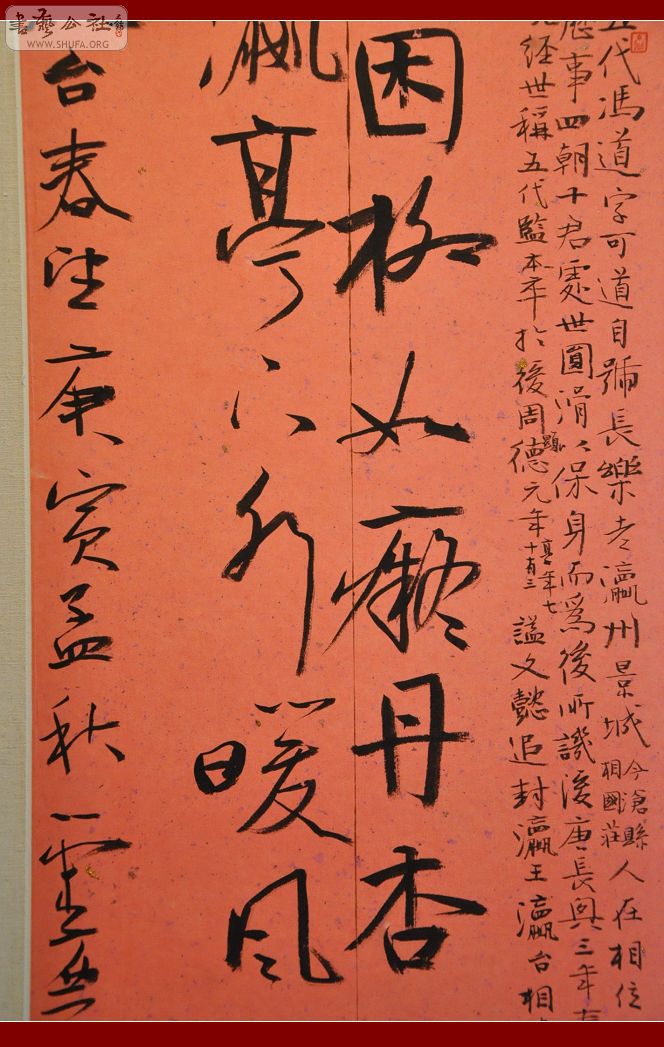 五代馮道字可道自號長樂老瀛州景城今滄縣相國莊人在相位
歷事四朝十君處世圓滑以保身而為後所譏後唐長興三年
九經世稱五代監本卒於後周顯德元年享年七十有三謚文懿追封瀛王瀛台相
困柳如癡丹杏
瀛亭下水暖風
台春望庚寅孟秋
書艺公社
www.SHUFA.ORG